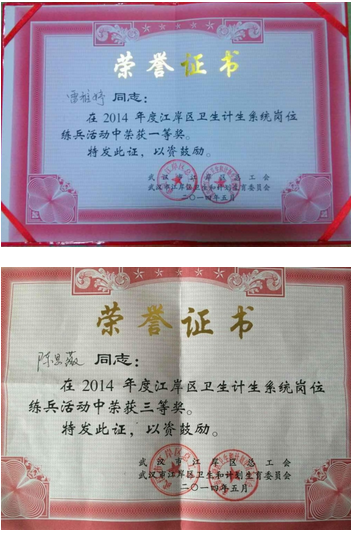 荣誉证书
雷雅婷 同志：
在 2014 年度江岸区卫生计生系统岗位
练兵活动中荣获一等奖。
特发此证，以资鼓励。
武汉市江岸区总工会
武汉市江岸区卫生和计划生育委员会
二〇一四年五月
荣誉证书
同志：
在 2014 年度江岸区卫生计生系统岗位
练兵活动中荣获三等奖。
特发此证，以资鼓励。
武汉市江岸区总工会
武汉市江岸区卫生和计划生育委员会
二〇一四年五月